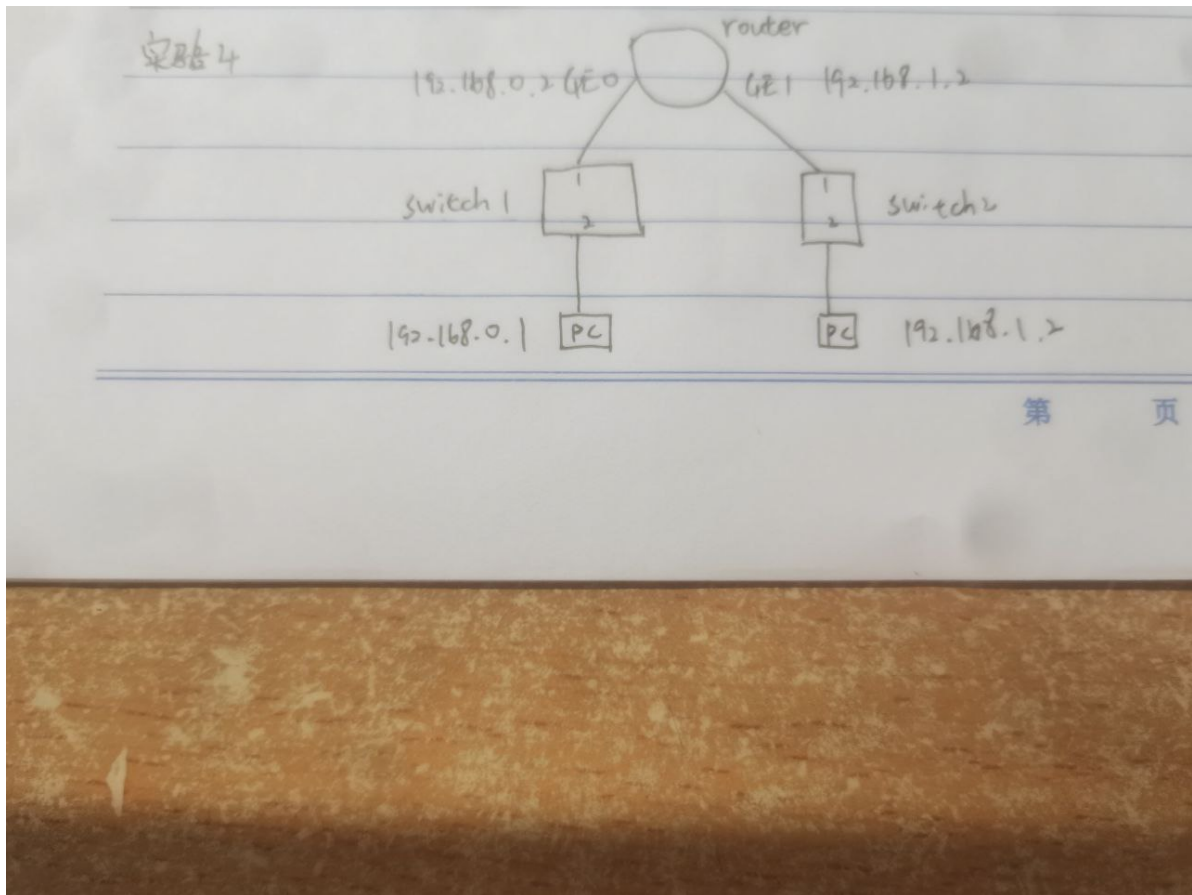 router
实验4
192.168.0.2 GE0
GE1 192.168.1.2
switch1
1
2
1
2
switch2
192.168.0.1
PC
PC
192.168.1.2
第 页